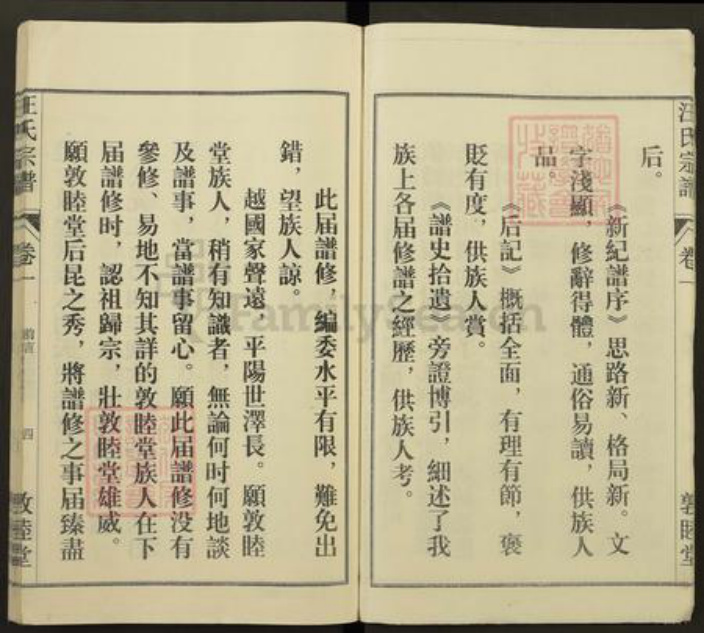 汪氏宗譜
卷一
敦睦堂
后。
《新紀譜序》思路新、格局新。文
字淺顯，修辭得體，通俗易讀，供族人
品。
《后記》概括全面，有理有節，褒
貶有度，供族人賞。
《譜史拾遺》旁證博引，細述了我
族上各届修譜之經歷，供族人考。
此届譜修，編委水平有限，難免出
錯，望族人諒。
越國家聲遠，平陽世澤長。願敦睦
堂族人，稍有知識者，無論何時何地談
及譜事，當譜事留心。願此届譜修没有
參修、易地不知其詳的敦睦堂族人在下
届譜修時，認祖歸宗，壯敦睦堂雄威。
願敦睦堂后昆之秀，將譜修之事届臻盡
汪氏宗譜
卷一
四
敦睦堂
FamilySearch